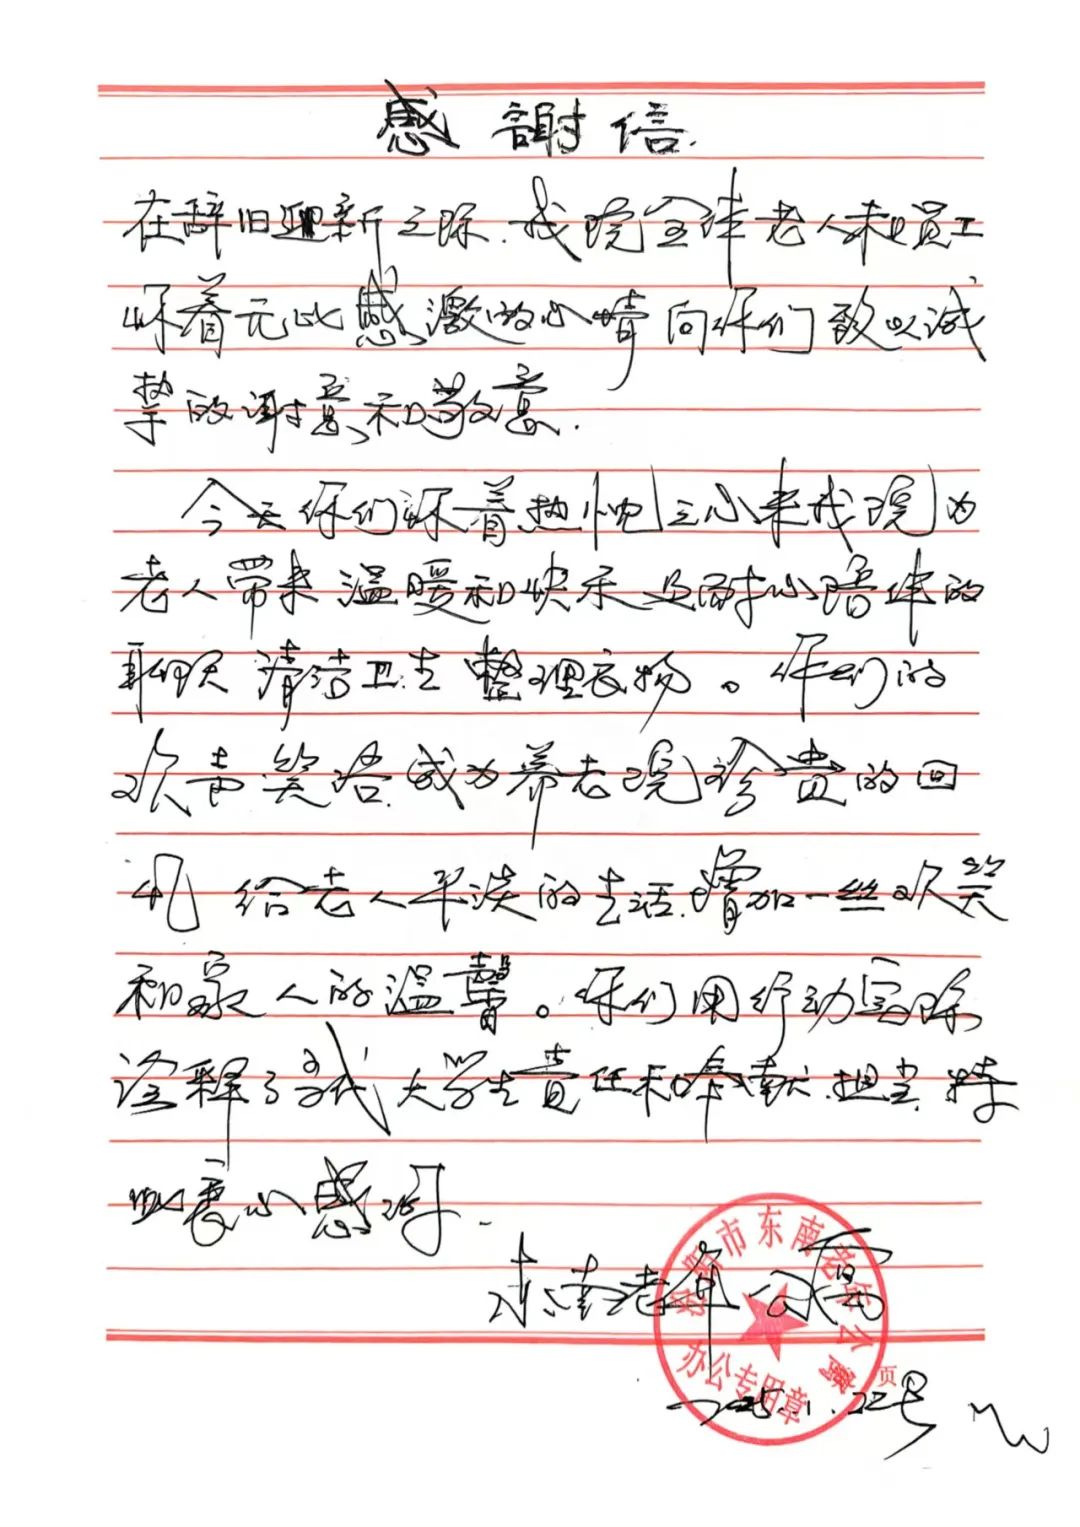 感謝信
在辞旧迎新之际.我院全体老人和员工
怀着无比感激的心情向你们致以诚
挚的谢意和敬意.
今天你们怀着热忱之心来我院为
老人带来温暖和快乐 及耐心陪伴的
聊天 清洁卫生 整理衣物。你们的
欢声笑语.成为养老院珍贵的回
忆 给老人平淡的生活.增加一丝欢笑
和家人的温馨。你们用行动实际
诠释了当代大学生责任和奉献.担当.特
此衷心感谢.
东南老年公寓
阳市东南老年公寓
办公专用章
页
2025.1.22号